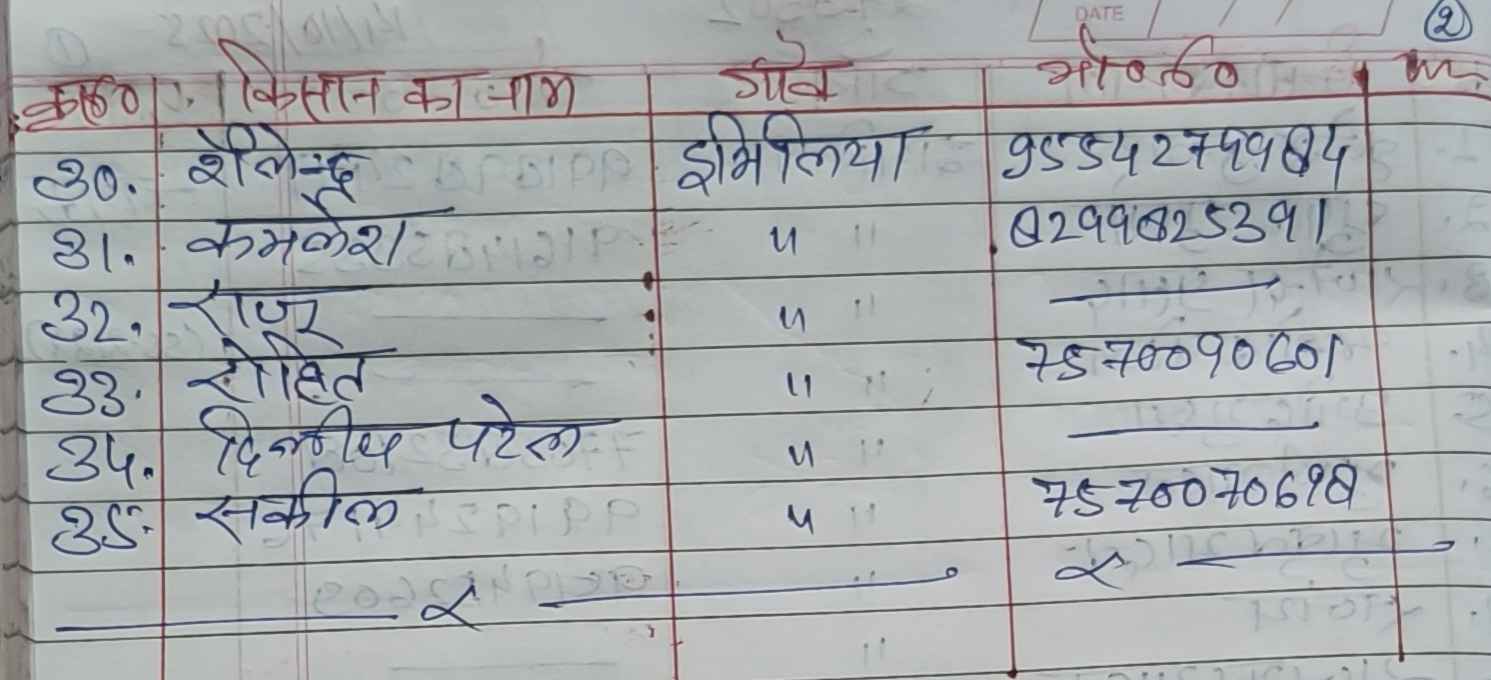 DATE / / / 2
क्र०सं० किसान का नाम गाँव मो०नं०
30. शैलेन्द्र इमिलिया
31. कमलेश 〃 8299825391
32. राजू 〃 —
33. रोहित 〃 7570090601
34. दिलीप पटेल 〃 —
35. सकील 〃 7570070698